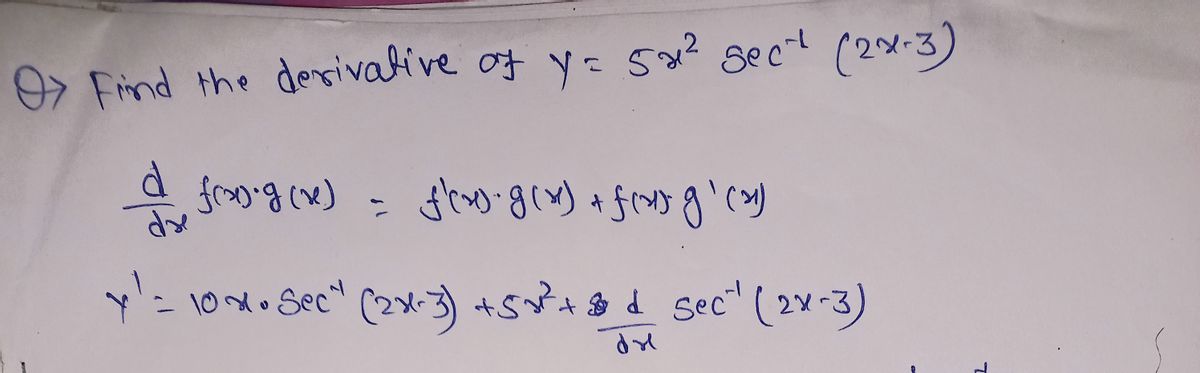 Q> Find the derivative of y = 5x² sec⁻¹ (2x-3)
d/dx f(x)·g(x) = f'(x)·g(x) + f(x)· g'(x)
y' = 10x · sec⁻¹ (2x-3) + 5x² + d/dx sec⁻¹ (2x-3)